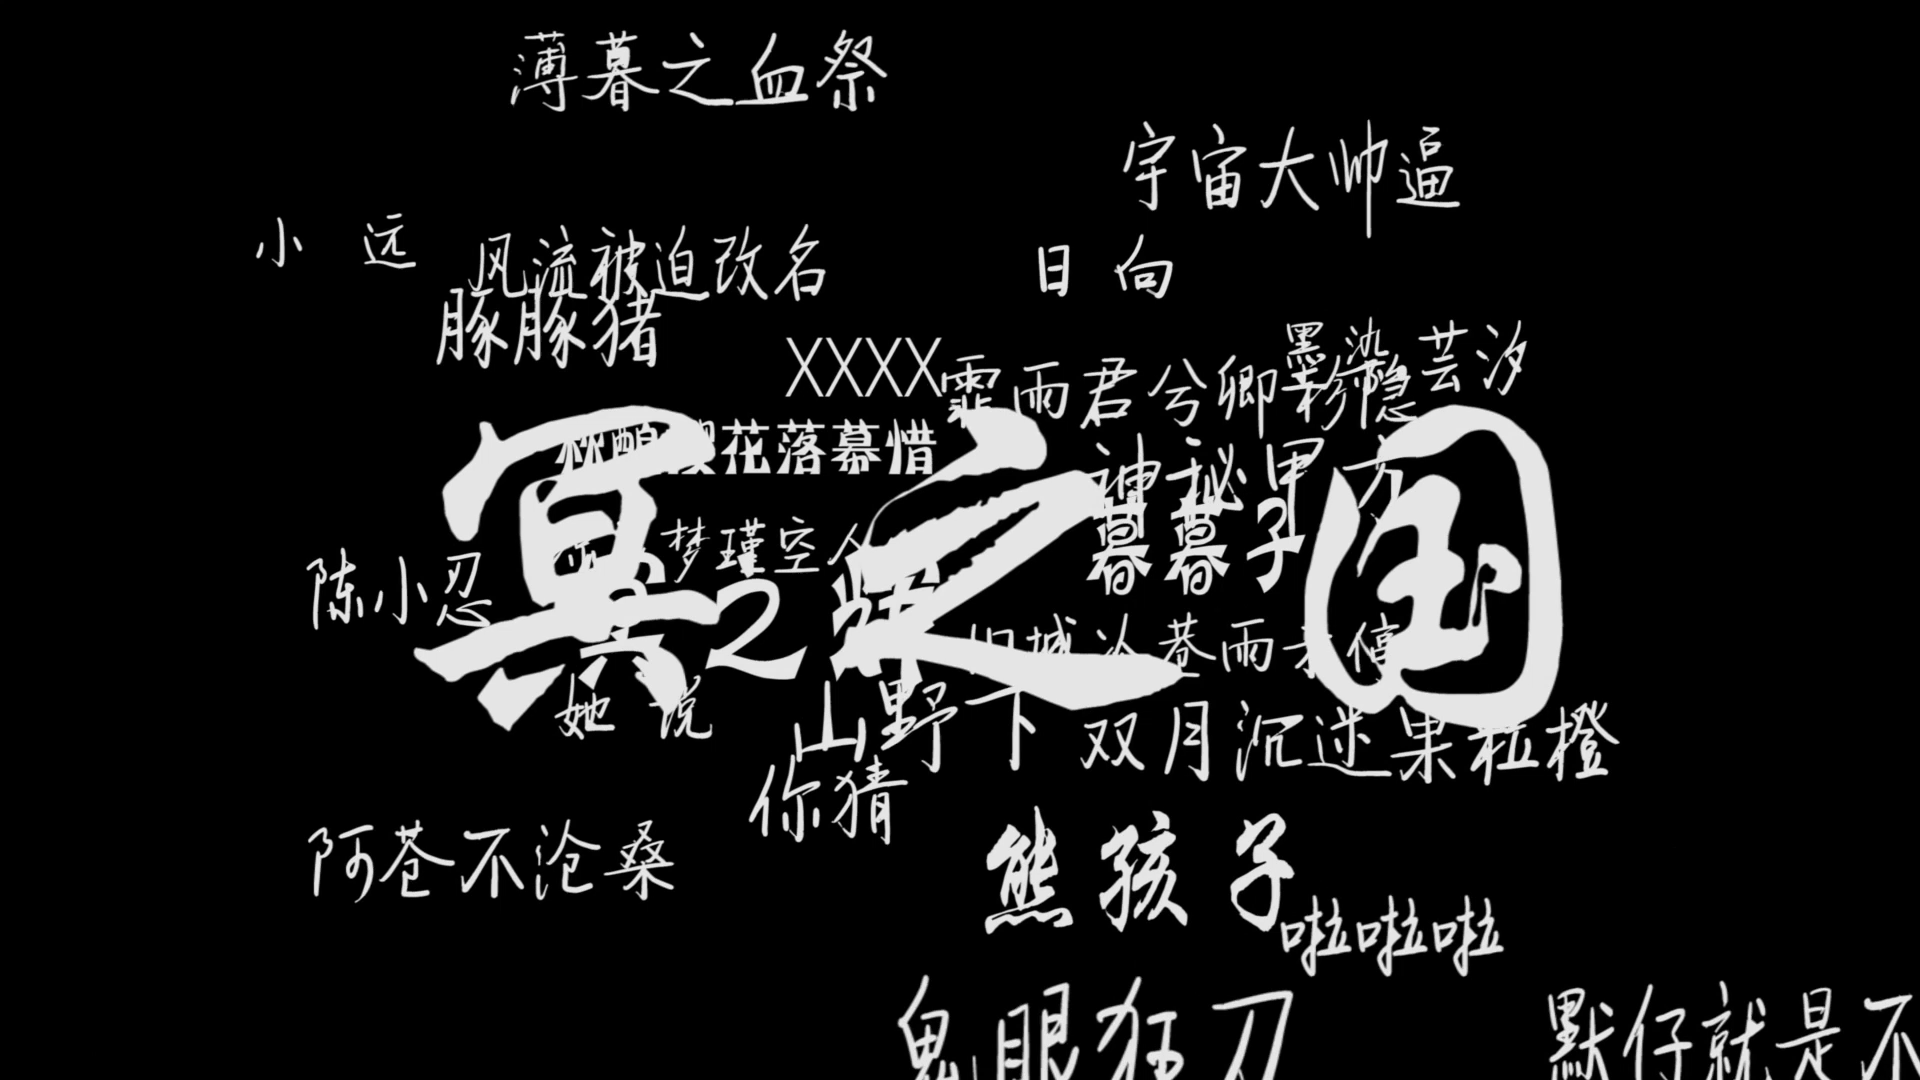 薄暮之血祭
宇宙大帅逼
小 远
风流被迫改名
日 向
豚豚猪
XXXX
霏雨君兮卿
墨染
隐
芸汐
花落幕惜
神秘甲方
冥之国
暮暮子
梦瑾空人
陈小忍
2
城
巷雨未停
她 说
山野下
双月沉迷果粒橙
你猜
阿苍不沧桑
熊孩子
啦啦啦
鬼眼狂刀
默仔就是不